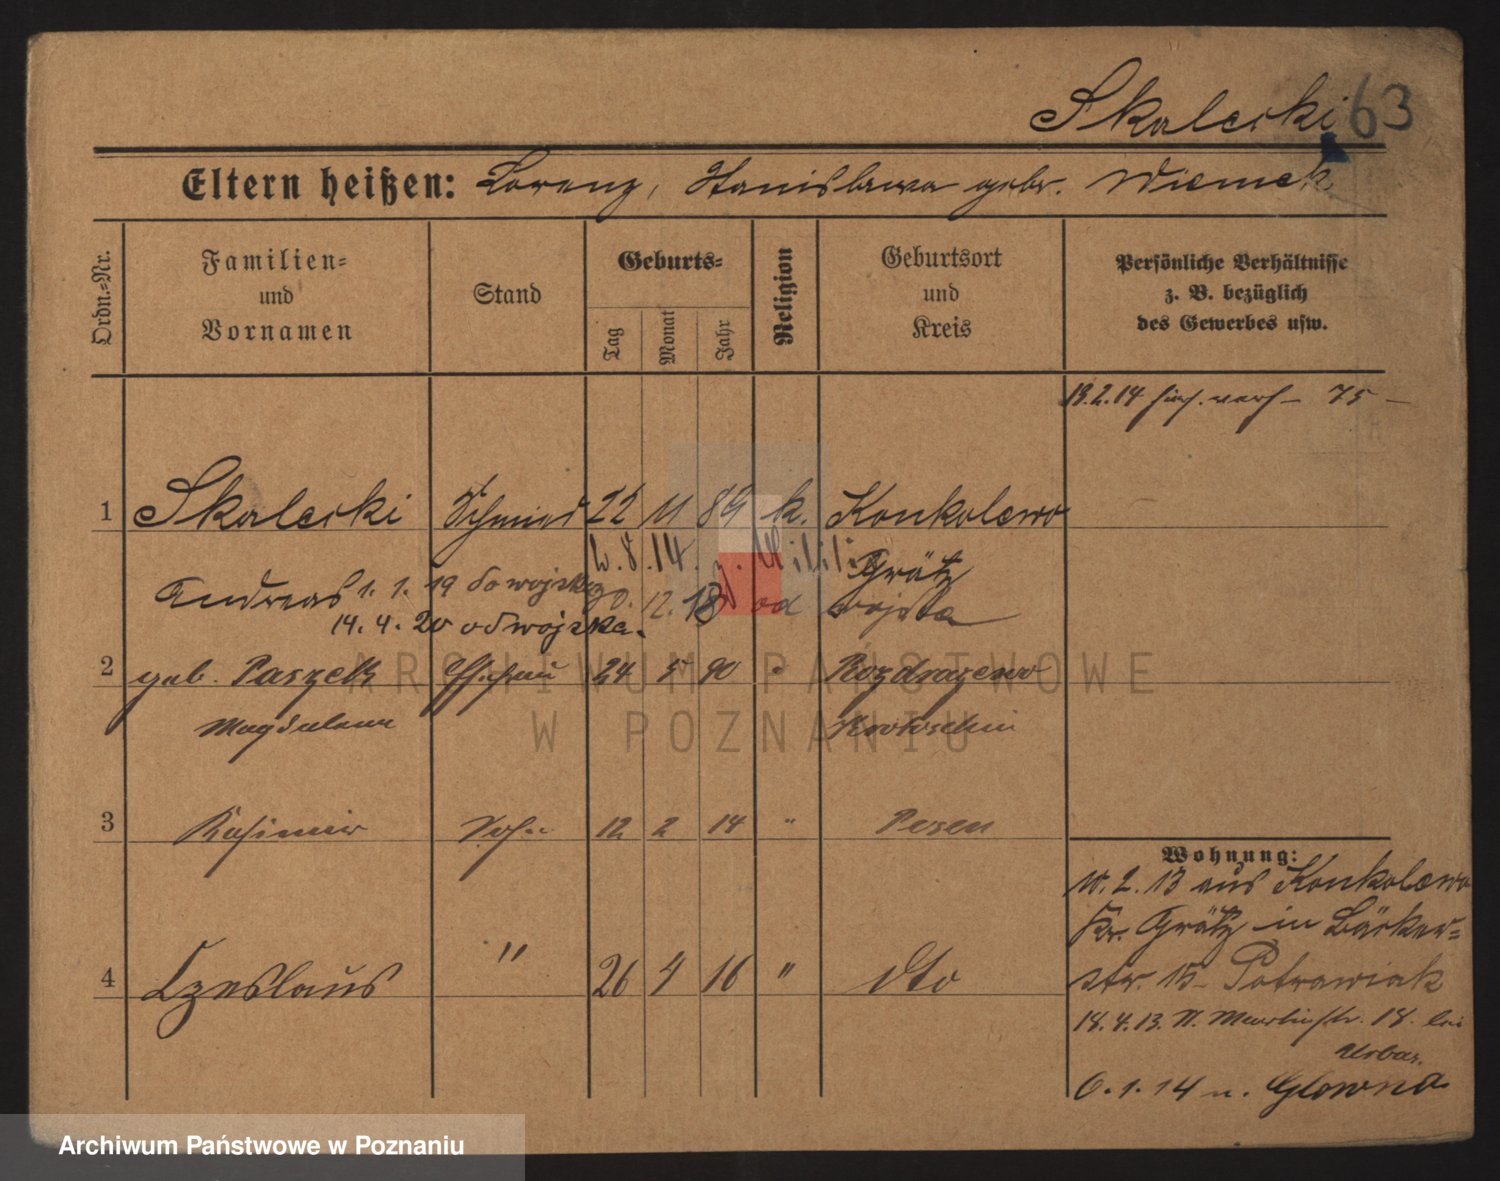 Skalecki 63
Eltern heißen: Lorenz, Stanislawa gebr. Wiemek
Ordn.-Nr.
Familien- und Vornamen
Stand
Geburts-
Tag
Monat
Jahr
Religion
Geburtsort und Kreis
Persönliche Verhältnisse z. B. bezüglich des Gewerbes usw.
19.2.14 75 —
1 Skalecki Schmied 22 11 89 k. Konkolewo
2.8.14. z. Militär Grätz
Andreas 1. 1. 19 do wojska 30. 12. 18 od wojska
14. 4. 20 od wojska.
2 geb. Paszek Ehefrau 24 5 90 " Rozdrazewo
Magdalena Krotoschin
3 Kasimir Sohn 12 2 14 " Posen
4 Czeslaus " 26 4 16 " dto
Wohnung:
10. 2. 13 aus Konkolewo
Kr. Grätz in Bäcker-
str. 15 Potrawiak
18. 4. 13. n. Martinstr. 18. bei
Urban.
6. 1. 14 n. Glowno
ARCHIWUM PAŃSTWOWE
W POZNANIU
Archiwum Państwowe w Poznaniu